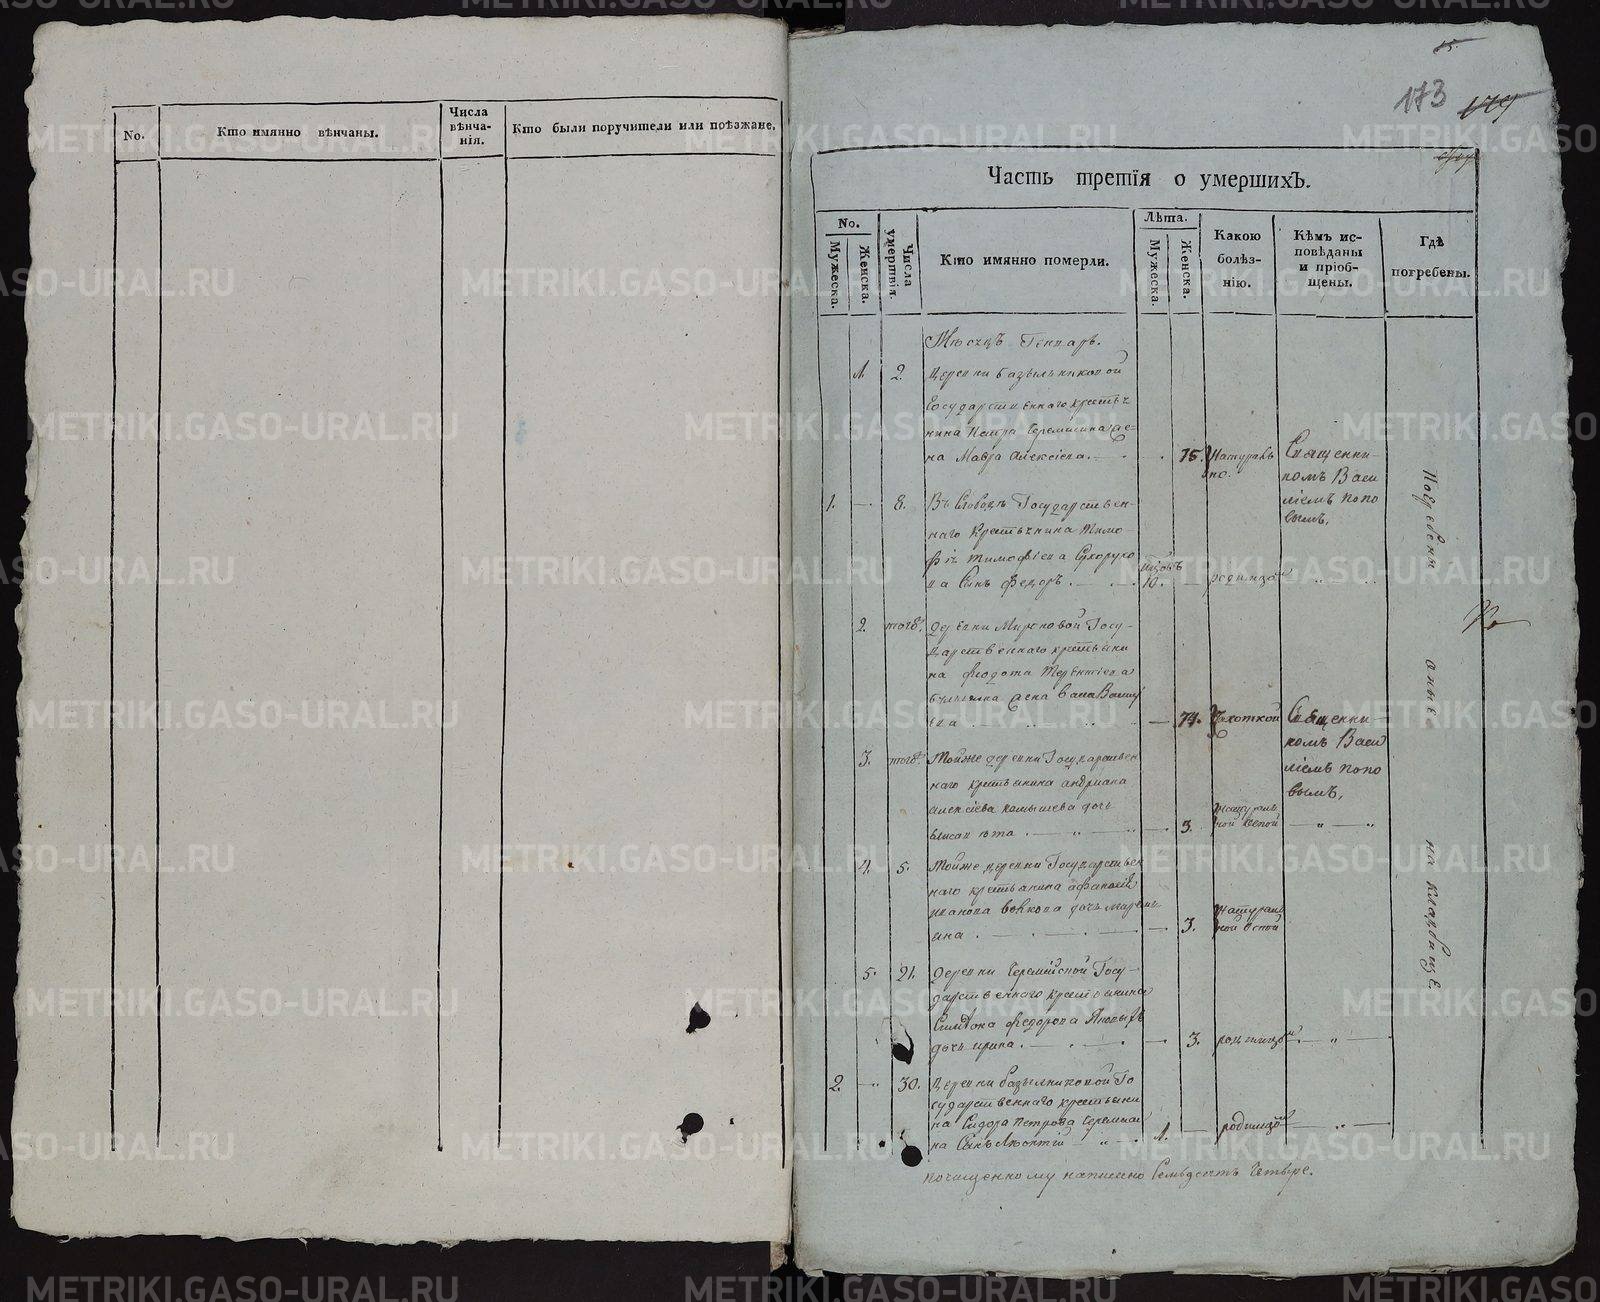 No.
Кто имянно вѣнчаны.
Числа вѣнча-нія.
Кто были поручители или поѣзжане.
173
Часть третія о умершихъ.
No.
Мужеска.
Женска.
Числа умертвія.
Кто имянно померли.
Лѣта.
Мужеска.
Женска.
Какою болѣз-нію.
Кѣмъ ис-повѣданы и пріоб-щены.
Гдѣ погребены.
Мѣсяцъ Генварь.
1. 2. Деревни базыльниковой
Государственнаго крестья
нина Петра Черемисина же-
на Мавра Алексіева. 75. Натураль
но.
Священни-
комъ Васи
ліемъ Попо
вымъ,
1. 8. Въ Слободѣ Государствен-
наго крестьянина Тимо
фія Тимофіева Сухоруко
ва Сынъ Федоръ. 10. родимцо
2. тогож. Деревни Мироновой Госу-
дарственнаго крестьяни
на Федота Терентіева
жена Васи
ева 74. Чахоткой
Священни-
комъ Васи
ліемъ Попо
вымъ,
3. тогож. Тойже деревни Государствен
наго крестьянина Андриана
Алексіева Камышева дочь
3. Натураль
ной Оспой
4. 5. Тойже деревни Государствен
наго крестьянина Афанасія
Иванова дочь Марем
яна 3. Натураль
ной Оспой
5. 21. Деревни Черемисской Госу-
дарственнаго крестьянина
Симеона Федорова
дочь Ирина. 3. родимцо
2. 30. Деревни базыльниковой Го
сударственнаго крестьяни
на Сидора Петрова Черемиси
на Сынъ Леонтій 1. родимцо
Погребены оные на кладбищѣ.
почищенному написано Семьдесятъ Четыре.
METRIKI.GASO-URAL.RU